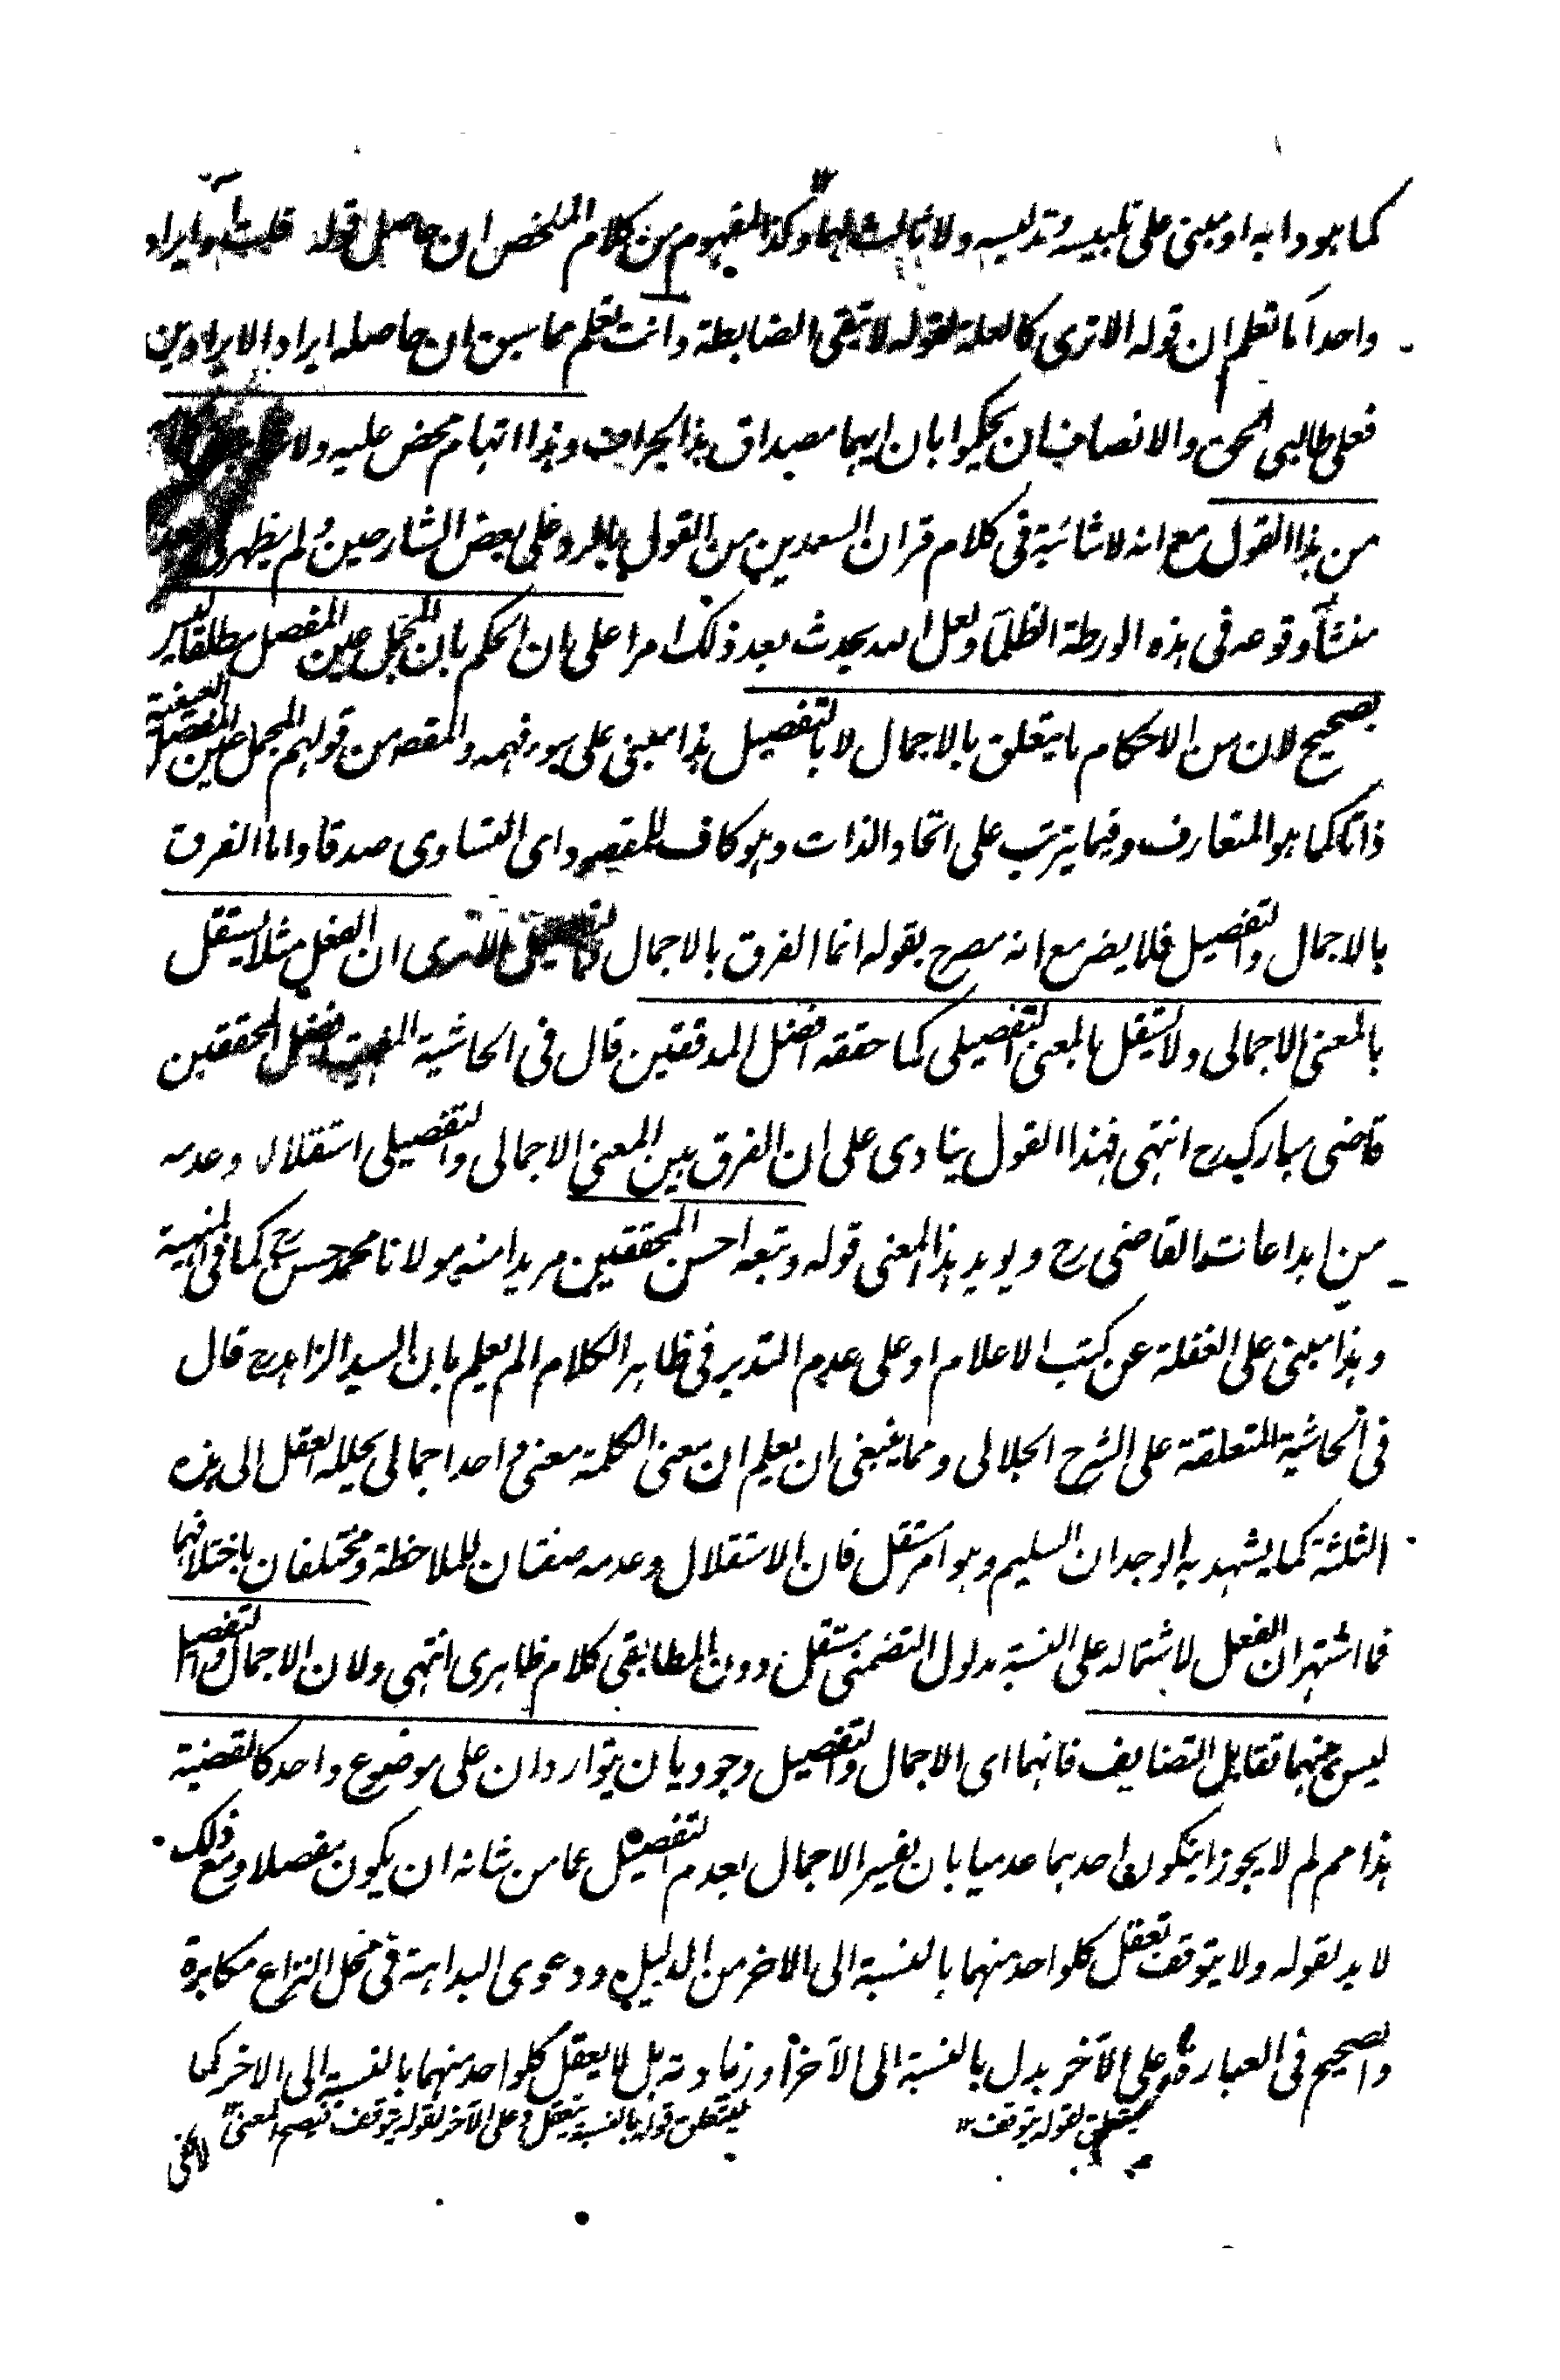 كما هو دابه او مبنى على تلبيسه وتدليسه ولا ثالث لهما وكذا المفهوم من كلام الملخص ان حاصل قوله قلت آه ايراد
واحد اما تعلم ان قوله الا ترى كالعلة لقوله لا تبقى الضابطة وانت تعلم مما سبق ان حاصله ايراد الايرادين
فعلى طالبى الحق والانصاف ان يحكموا بان ايهما مصداق هذا الجراف وهذا اتهام محض عليه ولا
من هذا القول مع انه لا شائبة فى كلام قران السعدين من القول بالرد على بعض الشارحين ولم يظهر لى بعد
منشأ وقوعه فى هذه الورطة الظلمآ ولعل الله يحدث بعد ذلك امرا على ان الحكم بان المجمل عين المفصل مطلقا ليس
بصحيح لان من الاحكام ما يتعلق بالاجمال لا بالتفصيل هذا مبنى على سور فهمه والمقصه من قولهم المجمل عين المفصل العينية
ذاتا كما هو المتعارف وفيما يترتب على اتحاد الذات وهو كاف للمقصود اى التساوى صدقا واما الفرق
بالاجمال والتفصيل فلا يضر مع انه مصرح بقوله انما الفرق بالاجمال والتفصيل الا ترى ان الفعل مثلا يستقل
بالمعنى الاجمالى ولا يستقل بالمعنى التفصيلى كما حققه افضل المدققين قال فى الحاشية افضل المحققين
قاضى مبارك رح انتهى فهذا القول ينادى على ان الفرق بين المعنى الاجمالى والتفصيلى استقلالا وعدمه
من ابداعات القاضى رح ويويد هذا المعنى قوله وتبعه احسن المحققين مريدا منه مولانا محمد حسن رح كما فى المنهية
وهذا مبنى على الغفلة عن كتب الاعلام او على عدم التدبر فى ظاهر الكلام الم يعلم بان السيد الزاهد رح قال
فى الحاشية المتعلقة على الشرح الجلالى ومما ينبغى ان يعلم ان معنى الكلمة معنى واحد اجمالى يحلله العقل الى هذه
الثلثة كما يشهد به الوجدان السليم وهو امر مستقل فان الاستقلال وعدمه صفتان للملاحظة ومختلفان باختلافهما
فما اشتهر ان الفعل لاشتماله على النسبة مدلول التضمنى مستقل دون المطابقى كلام ظاهرى انتهى ولان الاجمال والتفصيل
ليس بينهما تقابل التضايف فانهما اى الاجمال والتفصيل وجوديان يتواردان على موضوع واحد كالقضية
هذا مم لم لا يجوز ان يكون احدهما عدميا بان يفسر الاجمال بعدم التفصيل عما من شانه ان يكون مفصلا ومع ذلك
لا بد لقوله ولا يتوقف تعقل كلواحد منهما بالنسبة الى الاخر من الدليل ودعوى البداهة فى محل النزاع مكابرة
والصحيح فى العبارة على الآخر بدل بالنسبة الى الآخر او زيادته بل لا يعقل كلواحد منهما بالنسبة الى الاخر كما
متعلق لقوله يتوقف ١٢
ليتعلق قوله بالنسبة بتعقل وعلى الآخر لقوله يتوقف فيصح المعنى ١٢
لا يخفى